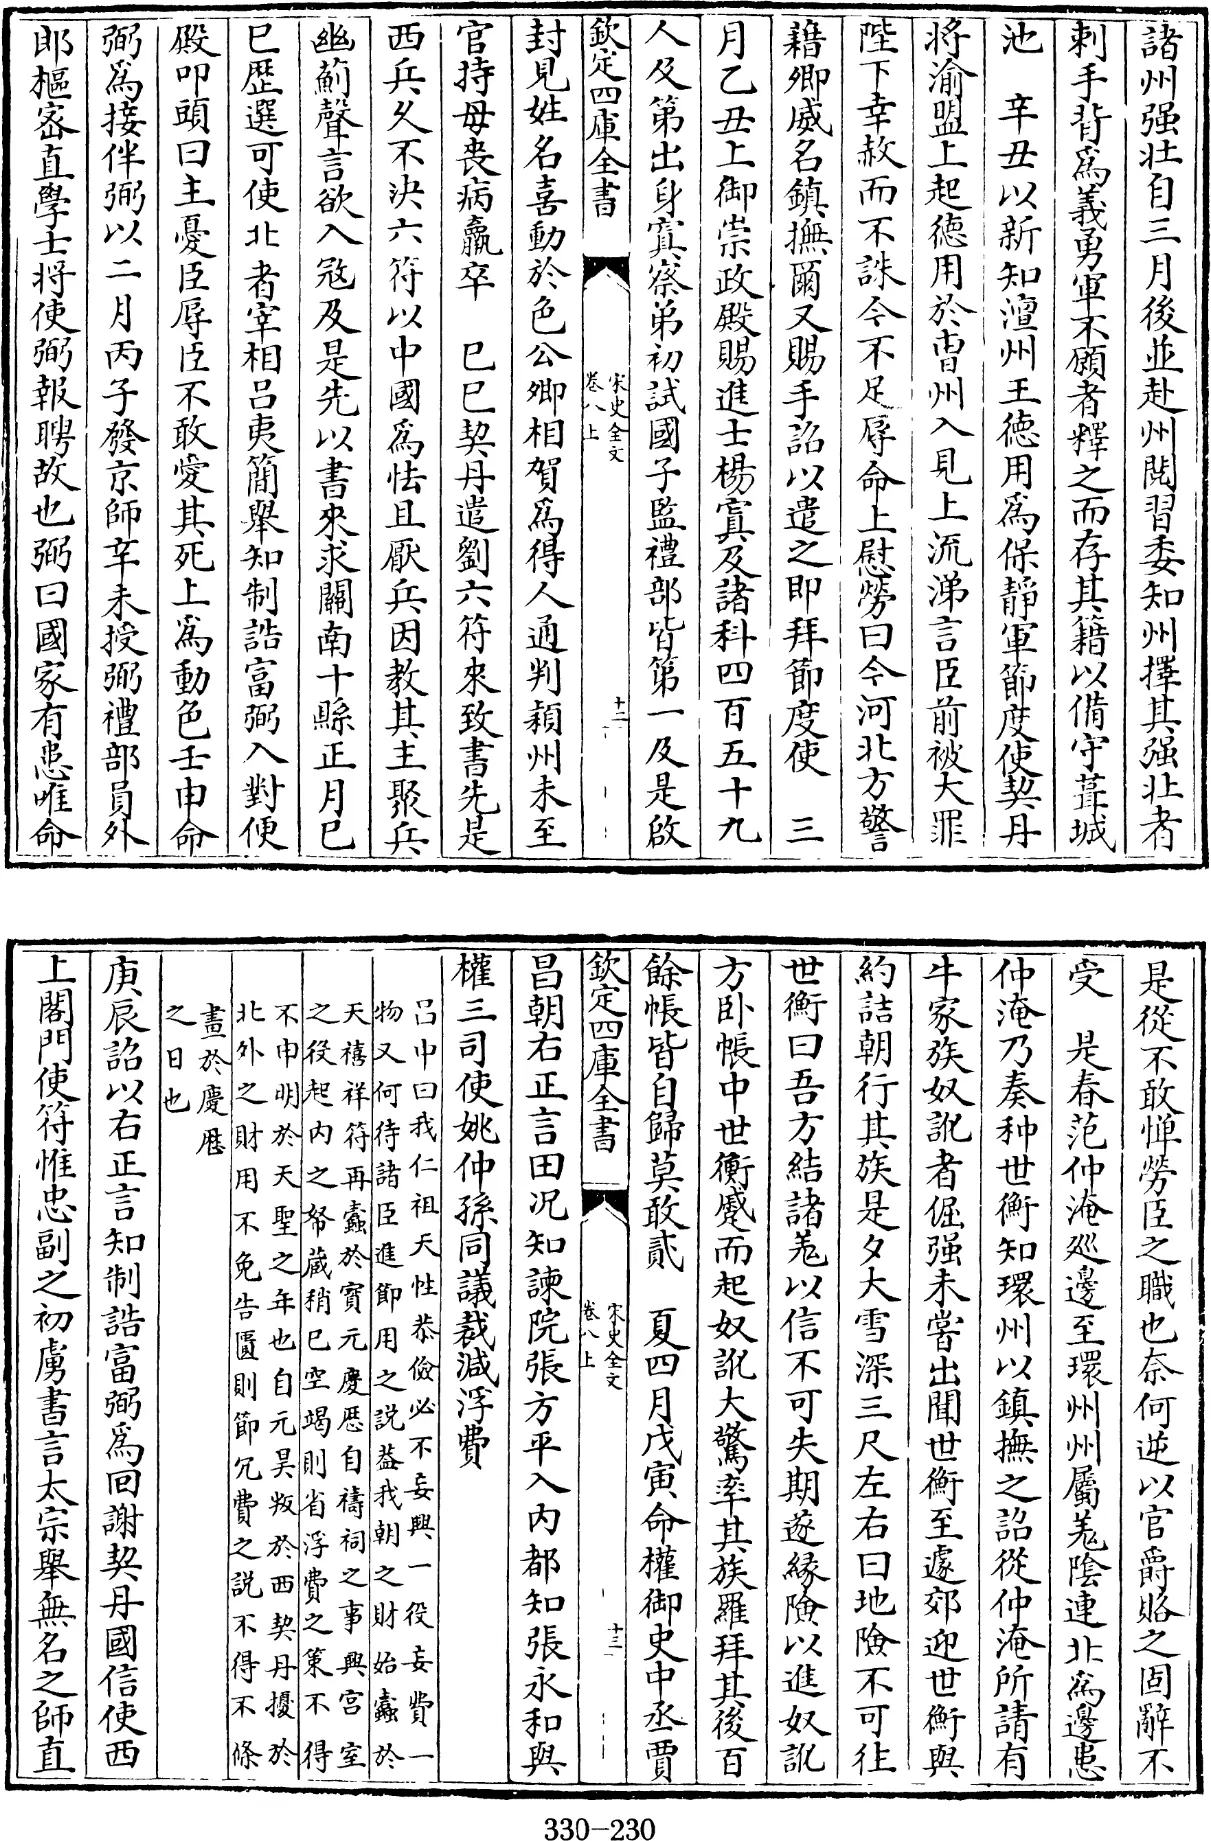 諸州强壮自三月後並赴州閲習委知州擇其强壮者
刺手背為義勇軍不願者釋之而存其籍以備守葺城
池　辛丑以新知澶州王徳用為保靜軍節度使契丹
将渝盟上起徳用於曹州入見上流涕言臣前被大罪
陛下幸赦而不誅今不足辱命上慰勞曰今河北方警
藉卿威名鎮撫爾又賜手詔以遣之即拜節度使　三
月乙丑上御崇政殿賜進士楊寘及諸科四百五十九
人及第出身寘察弟初試國子監禮部皆第一及是啟
欽定四庫全書
宋史全文
卷八上
十二
封見姓名喜動於色公卿相賀為得人通判穎州未至
官持母喪病羸卒　已巳契丹遣劉六符來致書先是
西兵久不決六符以中國為怯且厭兵因教其主聚兵
幽薊聲言欲入冦及是先以書來求關南十縣正月巳
已歴選可使北者宰相吕夷簡舉知制誥富弼入對便
殿叩頭曰主憂臣辱臣不敢愛其死上為動色壬申命
弼為接伴弼以二月丙子發京師辛未授弼禮部員外
郎樞宻直學士将使弼報聘故也弼曰國家有患唯命
是從不敢惮勞臣之職也奈何逆以官爵賂之固辭不
受　是春范仲淹廵邊至環州州屬羗陰連北為邊患
仲淹乃奏种世衡知環州以鎮撫之詔從仲淹所請有
牛家族奴訛者倔强未嘗出聞世衡至遽郊迎世衡與
約詰朝行其族是夕大雪深三尺左右曰地險不可往
世衡曰吾方結諸羗以信不可失期遂緣險以進奴訛
方卧帳中世衡蹙而起奴訛大驚率其族羅拜其後百
餘帳皆自歸莫敢貳　夏四月戊寅命權御史中丞賈
欽定四庫全書
宋史全文
卷八上
十三
昌朝右正言田况知諫院張方平入内都知張永和與
權三司使姚仲孫同議裁減浮費
吕中曰我仁祖天性恭儉必不妄興一役妄費一
物又何待諸臣進節用之説葢我朝之財始蠧於
天禧祥符再蠧於寳元慶厯自禱祠之事興宫室
之役起内之帑藏稍已空竭則省浮費之策不得
不申明於天聖之年也自元昊叛於西契丹擾於
北外之財用不免告匱則節冗費之説不得不條
畫於慶厯
之日也
庚辰詔以右正言知制誥富弼為回謝契丹國信使西
上閤門使符惟忠副之初虜書言太宗舉無名之師直
330-230